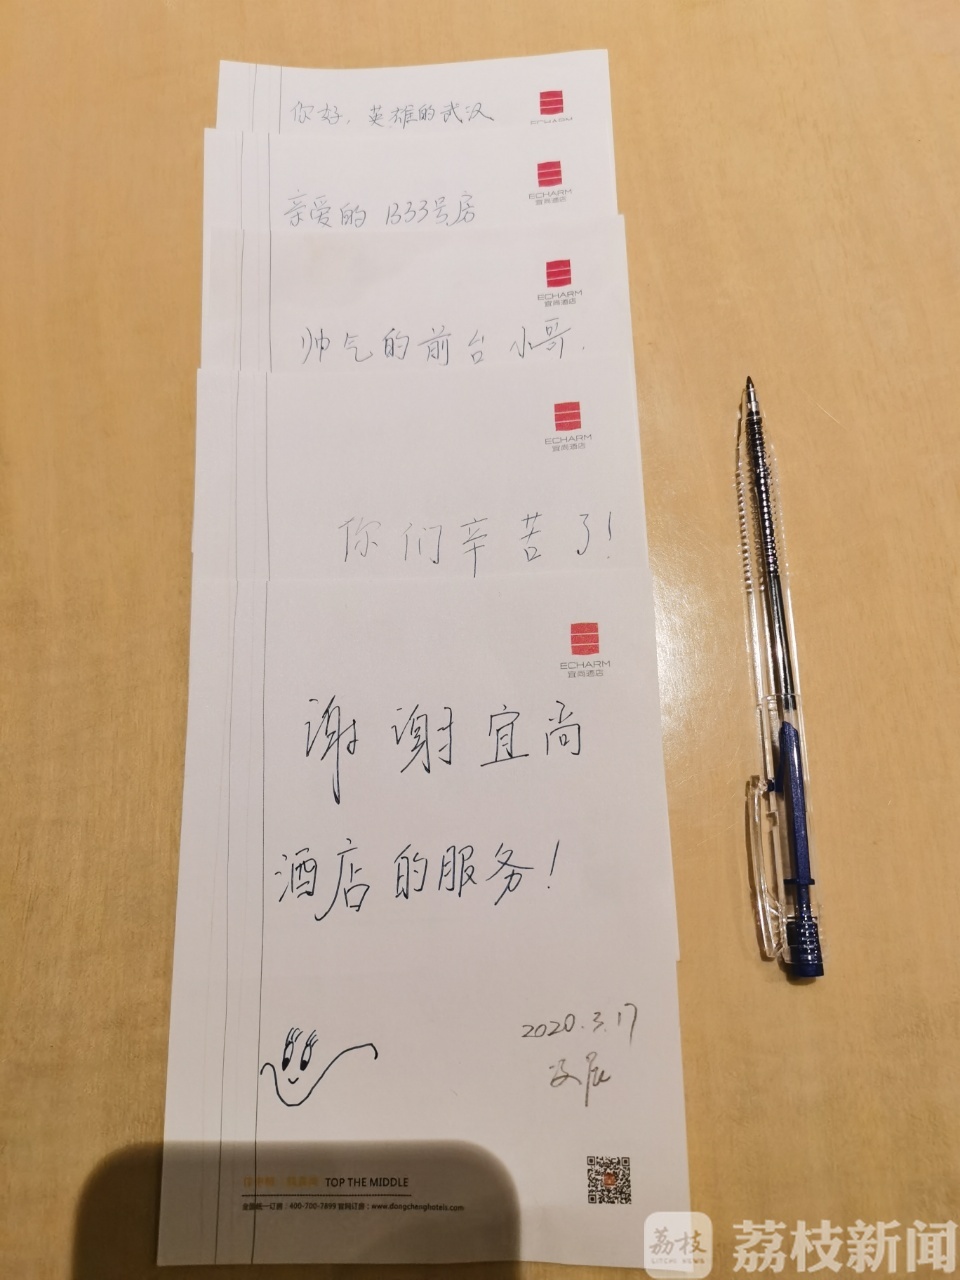 你好，英雄的武汉
ECHARM
宜尚酒店
亲爱的 1333号房
ECHARM
宜尚酒店
帅气的前台小哥.
ECHARM
宜尚酒店
你们辛苦了!
ECHARM
宜尚酒店
谢谢宜尚
酒店的服务!
2020.3.17
TOP THE MIDDLE
全国统一订房：400-700-7899 官网订房：www.dongchenghotels.com
荔枝
LITCHI NEWS
荔枝新闻